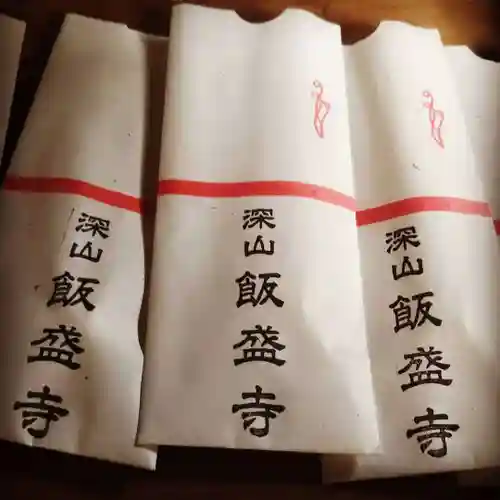 深山飯盛寺
深山飯盛寺
深山飯盛寺